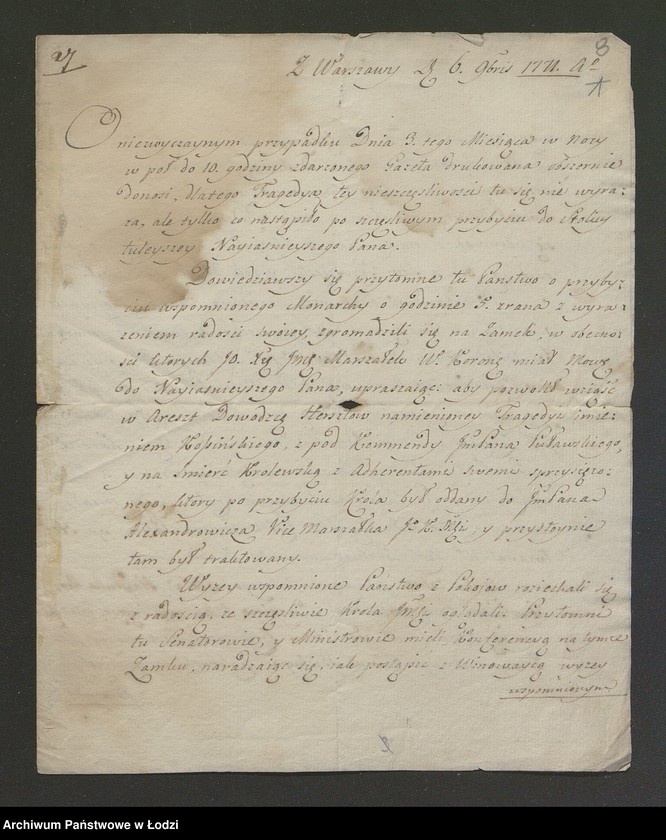 27
8
Z Warszawy d. 6. 9bris 1771. Aº
O
niezwyczaynym przypadku Dnia 3. tego Miesiąca w Nocy
w poł do 10. godziny zdarzonego Gazeta drukowana obszernie
donosi, dlatego Tragedya tey nieszczęśliwosci tu się nie wyra:
za, ale tylko co nastąpiło po szczęśliwym przybyciu do Stolicy
tuteyszey Nayiasnieyszego Pana.
Dowiedziawszy się przytomne tu Panstwo o przyby:
ciu wspomnionego Monarchy o godzinie 5. zrana z wyra:
zeniem radości swoiey, zgromadzili się na Zamek, w obecno:
sci ktorych JO. Xżę Jmć Marszałek W. Koronny miał Mowę
do Nayiasnieyszego Pana, upraszaiąc: aby pozwolił wziąść
w Areszt Dowodzcę Hersztow namienioney Tragedyi imie:
niem Kosinskiego, z pod Kommendy JmPana Puławskiego,
y na smierć Krolewską z Adherentami swemi sprzysięzo:
nego, ktory po przybyciu Krola był oddany do JmPana
Alexandrowicza Vice Marszałka J. K. Mci y przystoynie
tam był traktowany.
Wyzey wspomnione Państwo z Pokoiow roziechali się
z radoscią, ze szczęsliwie Krola Jmci oglądali: Przytomni
tu Senatorowie, y Ministrowie mieli Konferencyą na tymze
Zamku, naradzaiąc się, iak postąpić z Winowaycą wyzey
wspomnionym
2
Archiwum Państwowe w Łodzi